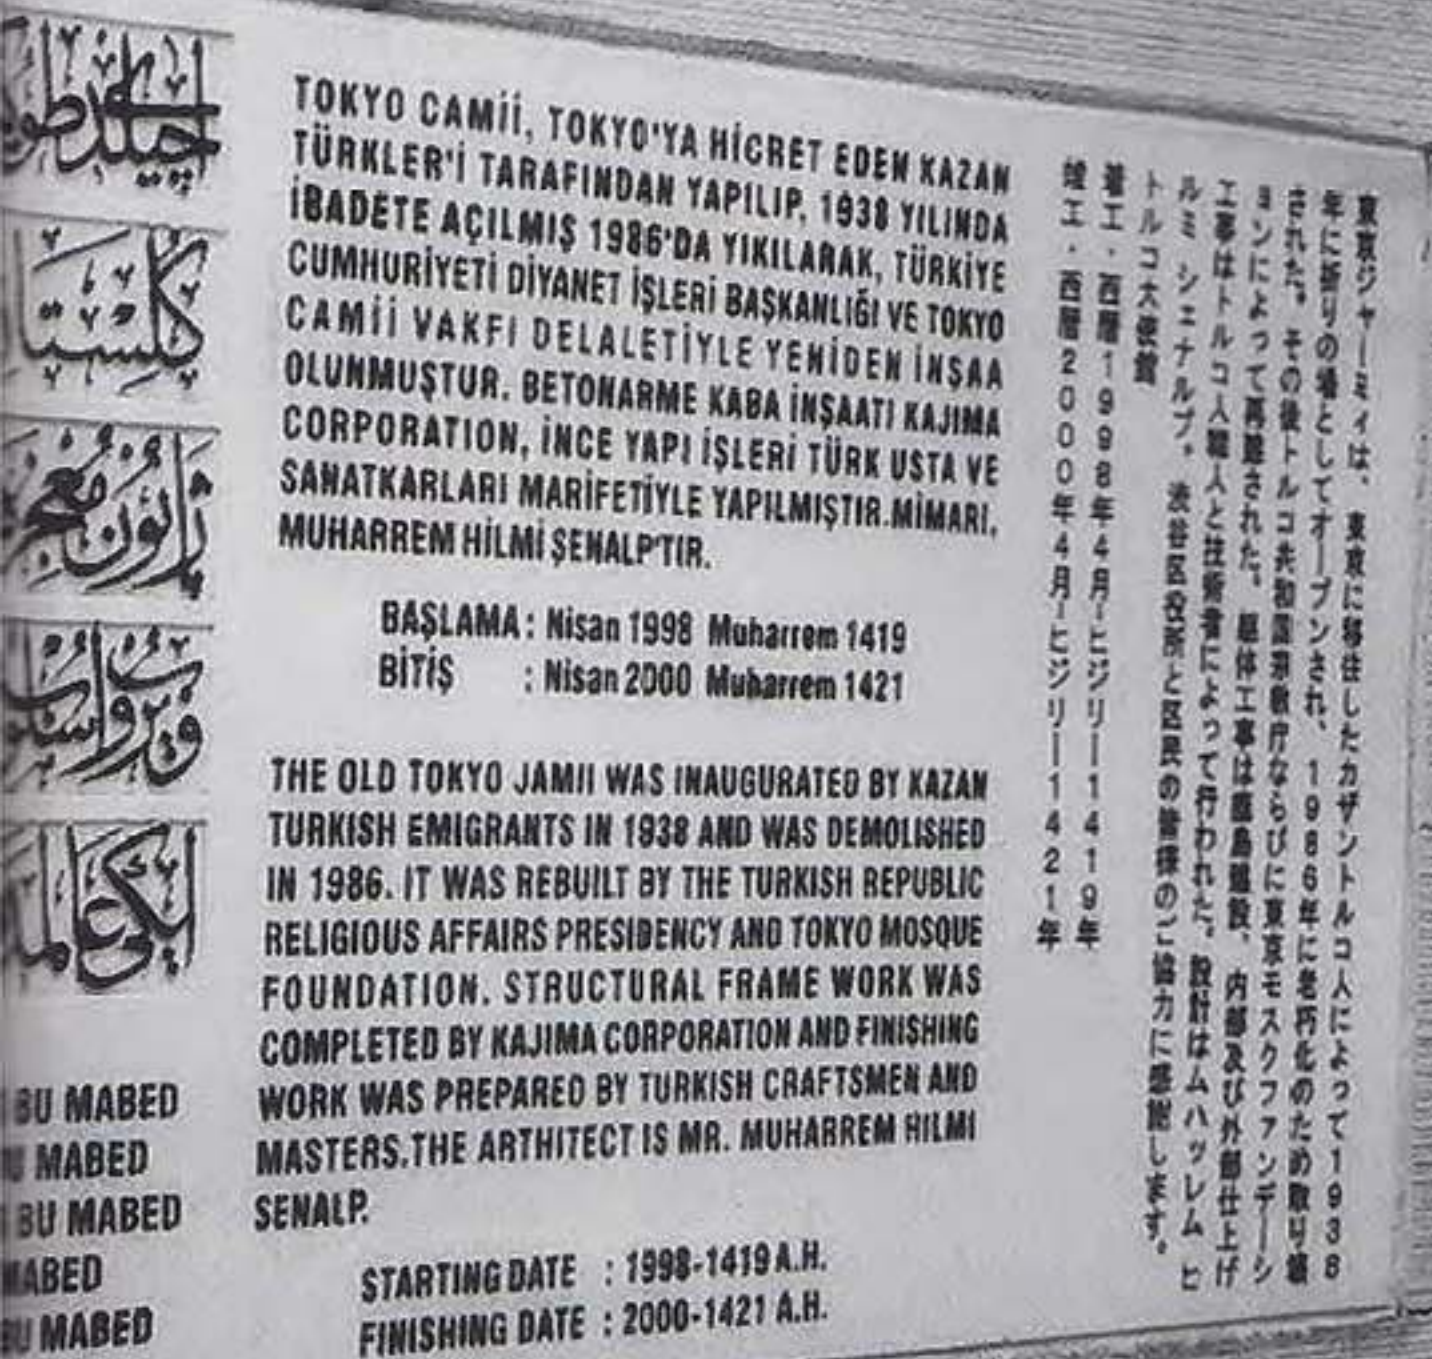 BU MABED
MABED
BU MABED
MABED
BU MABED
TOKYO CAMİİ, TOKYO'YA HİCRET EDEN KAZAN
TÜRKLER'İ TARAFINDAN YAPILIP, 1938 YILINDA
İBADETE AÇILMIŞ 1986'DA YIKILARAK, TÜRKİYE
CUMHURİYETİ DİYANET İŞLERİ BAŞKANLIĞI VE TOKYO
CAMİİ VAKFI DELALETİYLE YENİDEN İNŞAA
OLUNMUŞTUR. BETONARME KABA İNŞAATI KAJIMA
CORPORATION, İNCE YAPI İŞLERİ TÜRK USTA VE
SANATKARLARI MARİFETİYLE YAPILMIŞTIR.MİMARI,
MUHARREM HİLMİ ŞENALP'TIR.
BAŞLAMA : Nisan 1998 Muharrem 1419
BİTİŞ : Nisan 2000 Muharrem 1421
THE OLD TOKYO JAMII WAS INAUGURATED BY KAZAN
TURKISH EMIGRANTS IN 1938 AND WAS DEMOLISHED
IN 1986. IT WAS REBUILT BY THE TURKISH REPUBLIC
RELIGIOUS AFFAIRS PRESIDENCY AND TOKYO MOSQUE
FOUNDATION. STRUCTURAL FRAME WORK WAS
COMPLETED BY KAJIMA CORPORATION AND FINISHING
WORK WAS PREPARED BY TURKISH CRAFTSMEN AND
MASTERS.THE ARTHITECT IS MR. MUHARREM HILMI
SENALP.
STARTING DATE : 1998-1419 A.H.
FINISHING DATE : 2000-1421 A.H.
東京ジャーミイは、東京に移住したカザントルコ人によって1938
年に祈りの場としてオープンされ、1986年に老朽化のため取り壊
された。その後トルコ共和国宗教庁ならびに東京モスクファンデーシ
ョンによって再建された。躯体工事は鹿島建設、内部及び外部仕上げ
工事はトルコ人職人と技術者によって行われた。設計はムハッレム ヒ
ルミ シェナルプ。渋谷区役所と区民の皆様のご協力に感謝します。
トルコ大使館
着工・西暦1998年4月-ヒジリー1419年
竣工・西暦2000年4月-ヒジリー1421年